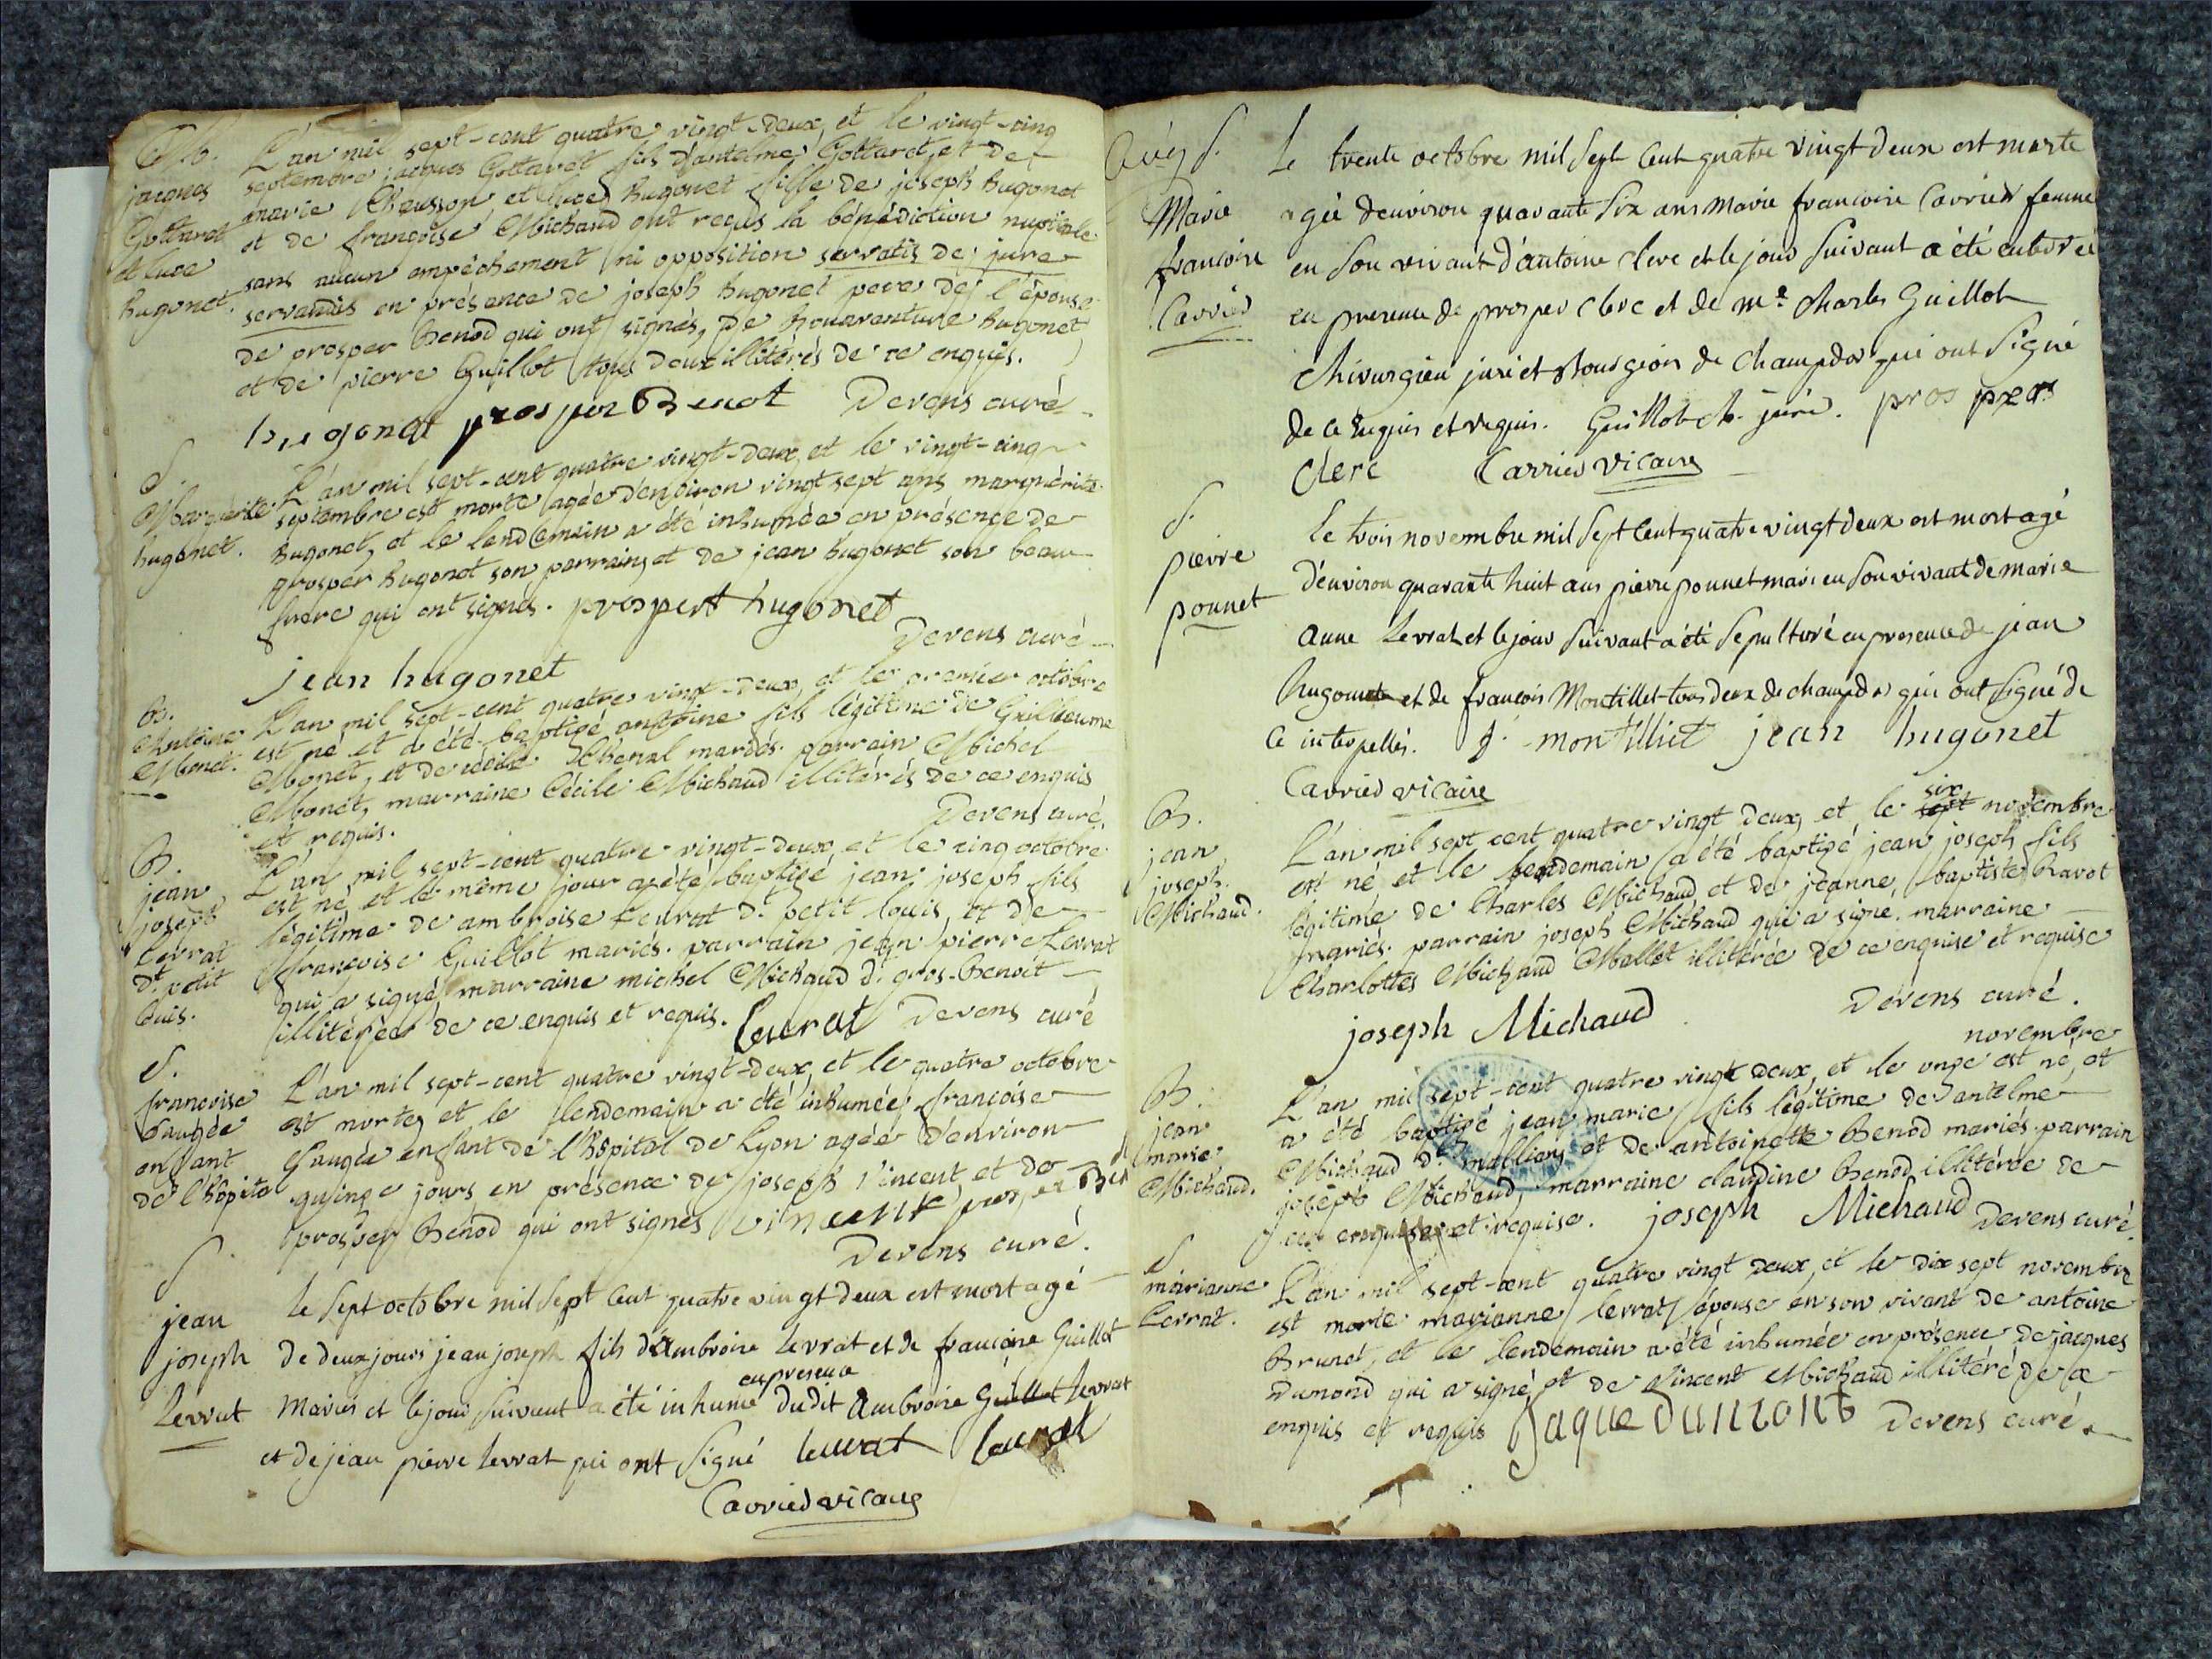 M.
jacques
Gottaret
et luce
hugonet.
L'an mil sept-cent quatre vingt-deux, et le vingt-cinq
septembre jacques Gottaret fils d'antelme Gottaret, et de
marie Chausson, et luce hugonet fille de joseph hugonet
et de françoise Michaud ont reçus la bénédiction nuptiale
sans aucun empéchement ni opposition servatis de jure
servandis en présence de joseph hugonet pere de l'épouse
de prosper Benod qui ont signés, de Bonaventure hugonet
et de pierre Guillot tous deux illitérés de ce enquis.
hugonet prosper Benot Devens curé
S.
Marguerite
hugonet.
L'an mil sept-cent quatre vingt-deux, et le vingt-cinq
septembre est morte agée d'environ vingt sept ans marguérite
hugonet, et le lendemain a été inhumée en présence de
prosper hugonet son parrain, et de jean hugonet son beau
frere qui ont signés. prospert hugonet
Devens curé
jean hugonet
B.
Antoine
Monet.
L'an mil sept-cent quatre vingt-deux, et le premier octobre
est né et a été baptizé antoine fils légitime de Guilleaume
Monet, et de cécile Chenal mariés. parrain Michel
Monet, marraine Cécile Michaud illitérés de ce enquis
et requis. Devens curé,
B.
jean
joseph
Levrat
dt. petit
Louis.
L'an mil sept-cent quatre vingt-deux, et le cinq octobre
est né et le même jour a été baptizé jean joseph fils
légitime de ambroise Levrat dt. petit louis, et de
françoise Guillot mariés. parrain jean pierre Levrat
qui a signé, marraine michel Michaud dt. gros-Benoit
illitérée de ce enquis et requis. Levrat Devens curé
S.
françoise
Gaugée
enfant
de l'hopital
L'an mil sept-cent quatre vingt-deux, et le quatre octobre
est morte, et le lendemain a été inhumée, françoise
Gaugée enfant de l'hôpital de Lyon agée d'environ
quinze jours en présence de joseph vincent et de
prosper Benod qui ont signés vincent prosper Ben
Devens curé.
S.
jean
joseph
Levrat
le Sept octobre mil Sept Cent quatre vingt deux est mort agé
de deux jours jean joseph fils d'Ambroise Levrat et de francoise Guillot
en presence
Mariés et le jour Suivant a été inhumé dudit Ambroise Guillot Levrat
et de jean pierre Levrat qui ont Signé levrat levrat
Carrier vicaire
S.
Marie
francoise
Carrier
Le trente octobre mil Sept Cent quatre Vingt deux est morte
agée denviron quarante Six ans Marie francoise Carrier femme
en Son vivant d'antoine Clerc et le jour Suivant a été enterrée
en presence de prosper Clerc et de me. Charles Guillot
Chirurgien juré et Bourgeois de Champdor qui ont Signé
de ce Enquis et requis. Guillot ch. juré. prosper
Clerc Carrier Vicaire
S.
pierre
ponnet
le trois novembre mil Sept Cent quatre vingt deux est mort agé
d'environ quarante huit ans pierre ponnet mari en Son vivant de marie
anne Levrat et le jour Suivant a été Sepulturé en presence de jean
hugonet et de francois Montillet tous deux de champdor qui ont Signé de
ce interpellés. f. montilliet jean hugonet
Carrier vicaire
B.
jean
joseph
Michaud.
six
L'an mil sept cent quatre vingt deux, et le sept novembre
est né et le lendemain a été baptizé jean joseph fils
légitime de Charles Michaud et de jeanne baptiste Ravot
mariés. parrain joseph Michaud qui a signé. marraine
Charlotte Michaud Mallet illitérée de ce enquise et requise
joseph Michaud Devens curé.
B.
jean
marie
Michaud.
novembre
L'an mil sept-cent quatre vingt deux, et le onze est né, et
a été baptizé jean marie fils légitime de antelme
Michaud dt. mallien, et de antoinette Benod mariés. parrain
joseph Michaud, marraine claudine Benod illitérée de
ce enquise et requise. joseph Michaud Devens curé.
S
marianne
Levrat.
L'an mil sept-cent quatre vingt deux, et le dix sept novembre
est morte marianne levrat épouse en son vivant de antoine
Brunet, et le lendemain a été inhumée en présence de jacques
Dumond qui a signé, et de Vincent Michaud illitéré de ce
enquis et requis Jaque Dumont Devens curé.